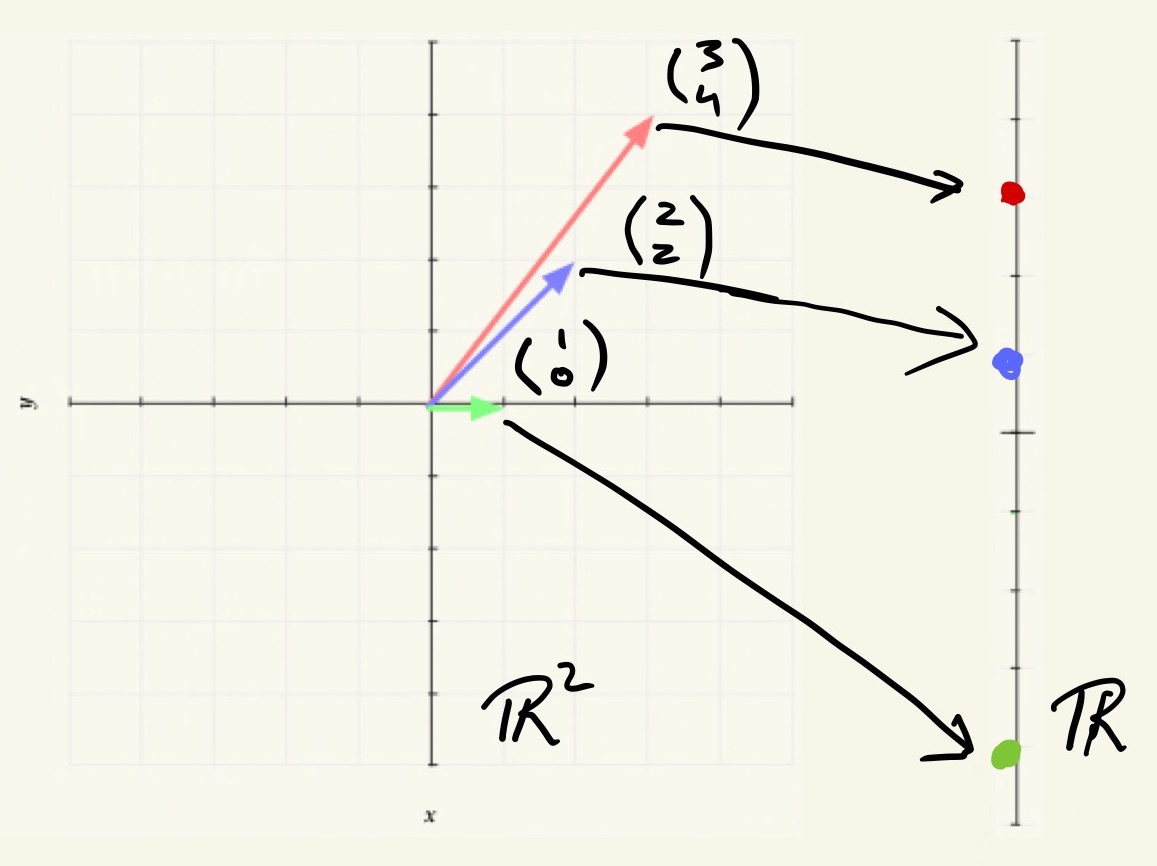 (3
4)
(2
2)
(1
0)
y
ℝ²
ℝ
x